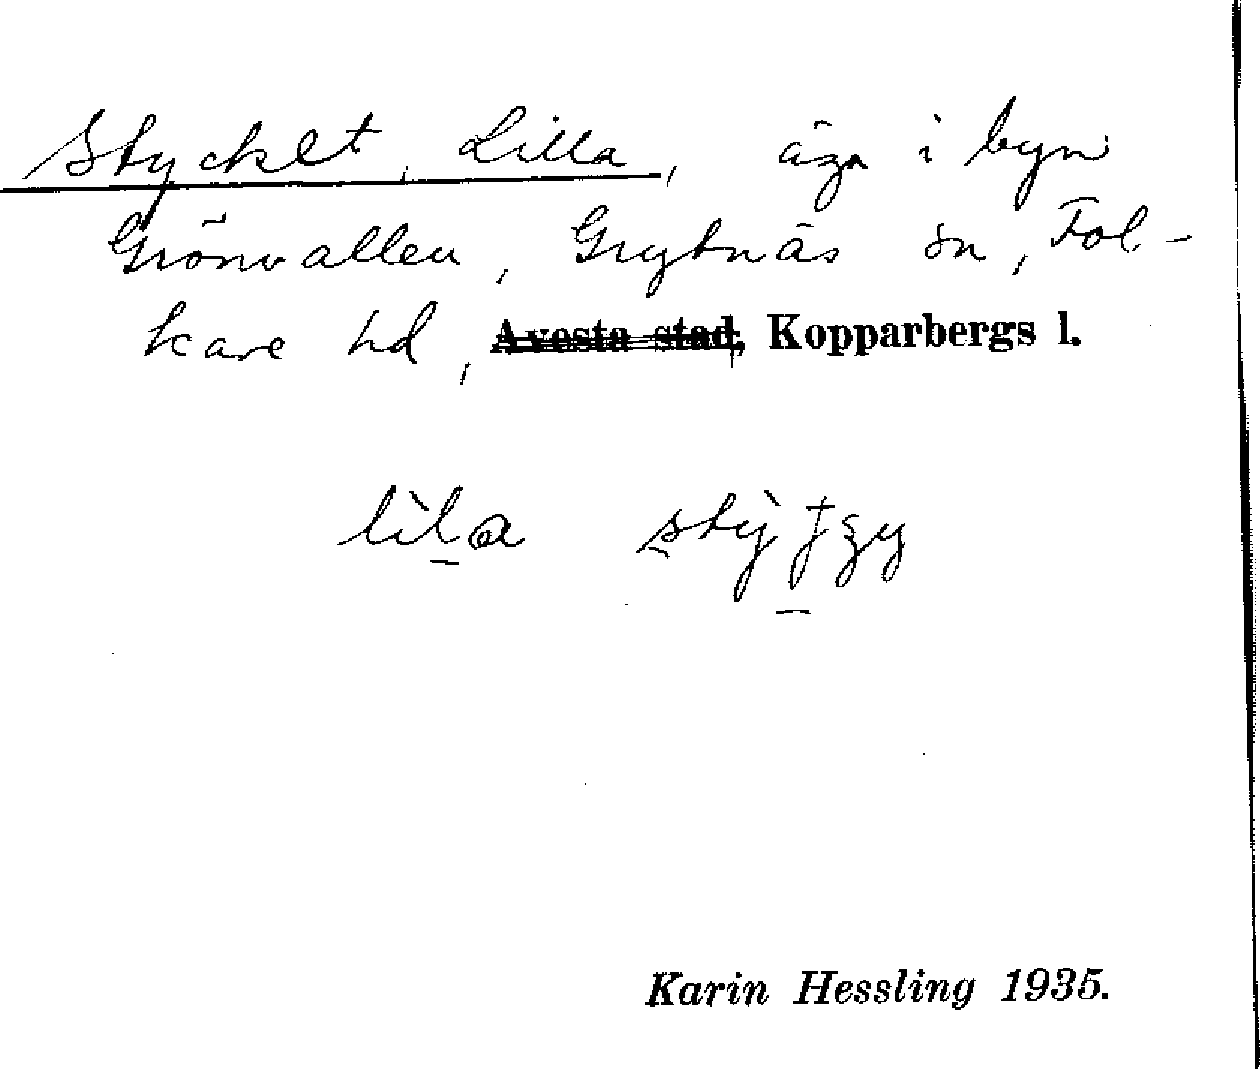 Stycket, Lilla, äga i byn
Grönvallen, Grytnäs sn, Fol-
kare hd, Avesta stad, Kopparbergs l.
lìla
Karin Hessling 1935.